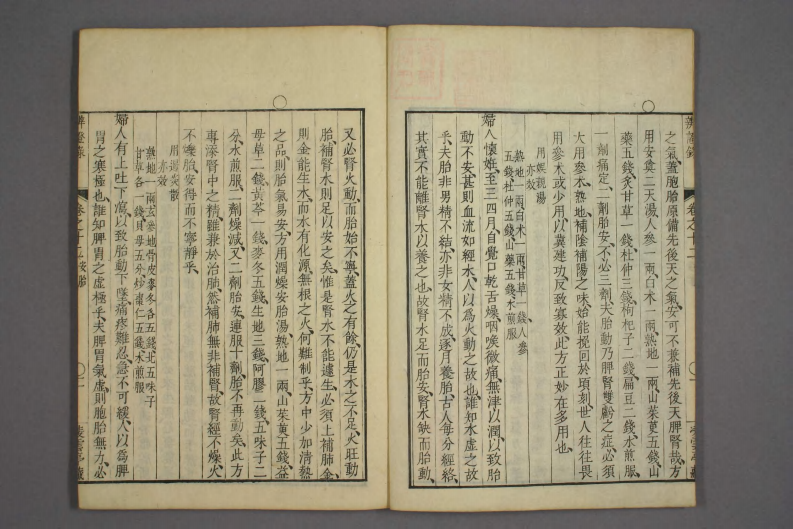 辨證錄
卷之十二
之氣蓋胞胎原備先後天之氣安可不兼補先後天脾腎哉方
用安奠二天湯人參一兩白朮一兩熟地一兩山茱萸五錢山
藥五錢炙甘草一錢杜仲三錢枸杞子二錢扁豆二錢水煎服
一劑痛定二劑胎安不必三劑夫胎動乃脾腎雙虧之症必須
大用參朮熟地補陰補陽之味始能挽回於頃刻世人往往畏
用參朮或少用以冀建功反致寡效此方正妙在多用也
用娛親湯
亦效
熟地一兩白朮一兩甘草一錢人參
五錢杜仲五錢山藥五錢水煎服
婦人懷姙至三四月自覺口乾舌燥咽喉微痛無津以潤以致胎
動不安甚則血流如經水人以為火動之故也誰知水虛之故
乎夫胎非男精不結亦非女精不成逐月養胎古人每分經絡
其實不能離腎水以養之也故腎水足而胎安腎水缺而胎動
又必腎火動而胎始不寧蓋火之有餘仍是水之不足火旺動
胎補腎水則足以安之矣惟是腎水不能遽生必須上補肺金
則金能生水而水有化源無根之火何難制乎方中少加清熱
之品則胎氣易安方用潤燥安胎湯熟地一兩山茱萸五錢益
母草二錢黃芩一錢麥冬五錢生地三錢阿膠二錢五味子二
分水煎服二劑燥減又二劑胎安連服十劑胎不再動矣此方
專添腎中之精雖兼於治肺然補肺無非補腎故腎經不燥火
不㷍胎安得而不寧靜乎
亦效
熟地一兩
甘草各一錢貝母五分炒棗仁五錢水煎服
婦人有上吐下瀉以致胎動下墜痛疼難忍急不可緩人以為脾
胃之寒極也誰知脾胃之虛極乎夫脾胃氣虛則胞胎無力必
辨證錄
卷之十二 安胎